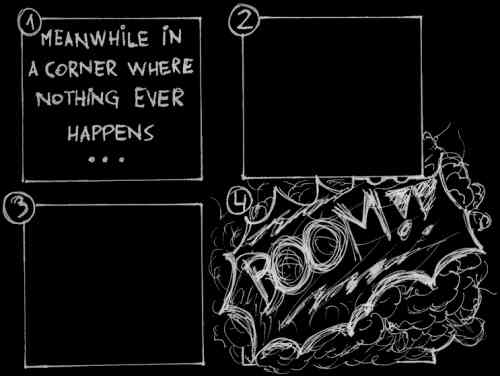 1
MEANWHILE IN
A CORNER WHERE
NOTHING EVER
HAPPENS
...
2
3
4
BOOM!!